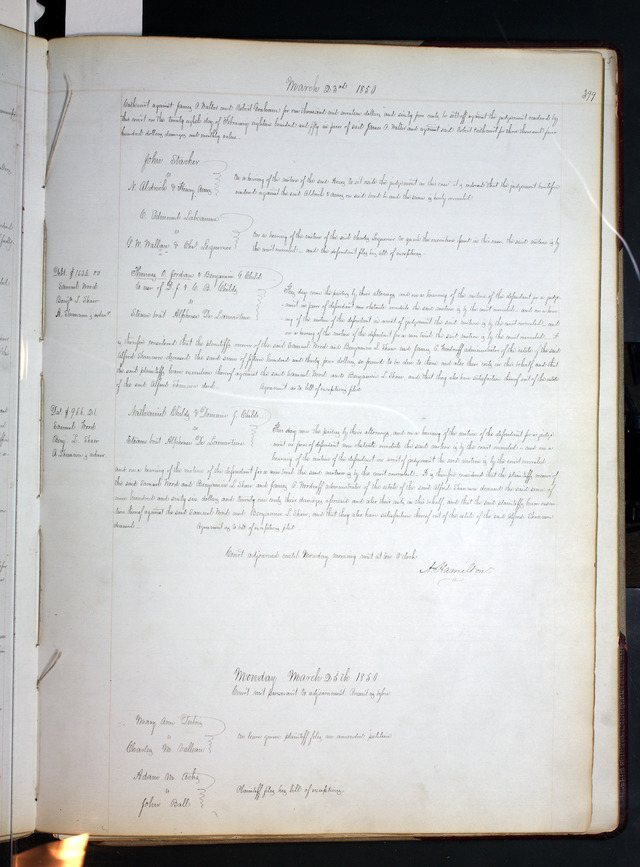 March 23rd 1850
399
Cathcart against James A. Walter and for one thousand and dollars and sixty four cents, be set off against the judgment rendered by
this court on the twenty eighth day of February eighteen hundred and fifty in favor of said James A. Walter and against said Cathcart for three thousand four
hundred dollars damages and costs
John Starker
vs
N. Aldrich & Henry Amy
On a hearing of the motion of the said Amy to set aside the judgment in this case it is ordered that the judgment heretofore
rendered against the said Aldrich & Amy be and the same is hereby annulled
C. Edmund Labeaume
vs
G. W. Wallace & Chs. Lequerier
On a hearing of the motion of the said Charles Lequerier to quash the execution issued in this case, the said motion is by
the court overruled and the defendant files his bill of exceptions.
Debt. $1534. 00
Samuel Wood
Benj. L. Shaw
A. admr
Thomas O. Jordan & Benjamin G. Childs
to use of & C. B. Childs
vs
Steam boat Alphonse De Lamartine
This day come the parties by their attorneys and on a hearing of the motion of the defendant for a judg-
ment in favor of defendant non obstante veredicto the said motion is by the court overruled and on a hear-
ing of the motion of the defendant in arrest of judgment the said motion is by the court overruled and
on a hearing of the motion of the defendant for a new trial the said motion is by the court overruled. It
is therefore considered that the plaintiffs recover of the said Samuel Wood and Benjamin L. Shaw and James C. Woodruff administrator of the estate of the said
Alfred deceased the said sum of fifteen hundred and thirty four dollars so found to be due to them and also their costs in this behalf, and that
the said plaintiffs have execution thereof against the said Samuel Wood and Benjamin L. Shaw, and that they also have satisfaction thereof out of the estate
of the said Alfred decd. Agreement as to bill of exceptions filed.
Debt $966. 21
Samuel Wood
Benj. L. Shaw
A. admr
Nathaniel Childs & Dominic G. Childs
vs
Steam boat Alphonse De Lamartine
This day come the parties by their attorneys, and on a hearing of the motion of the defendant for a judg-
ment in favor of defendant non obstante veredicto the said motion is by the court overruled and on a
hearing of the motion of the defendant in arrest of judgment the said motion is by the court overruled
and on a hearing of the motion of the defendant for a new trial the said motion is by the court overruled. It is therefore considered that the plaintiffs recover of
the said Samuel Wood and Benjamin L. Shaw and James C. Woodruff administrator of the estate of the said Alfred deceased the said sum of
nine hundred and sixty six dollars and twenty one cents their damages aforesaid and also their costs in this behalf, and that the said plaintiffs have execu-
tion thereof against the said Samuel Wood and Benjamin L. Shaw, and that they also have satisfaction thereof out of the estate of the said Alfred
deceased. Agreement as to bill of exceptions filed
Court adjourned until Monday morning next at ten O'clock
A. Hamilton
Monday March 25th 1850
Court met pursuant to adjournment. Present as before
Mary Ann
vs
Charles M. Valleau
On leave given plaintiff files an amended petition
Adam M.
vs
John Ball
Plaintiff files his bill of exceptions.